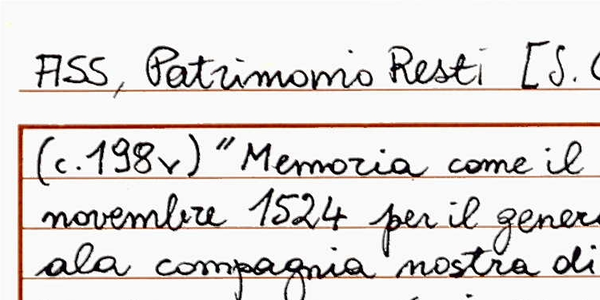 ASS, Patrimonio Resti [S.
(c.198v) "Memoria come il
novembre 1524 per il gener
ala compagnia nostra di